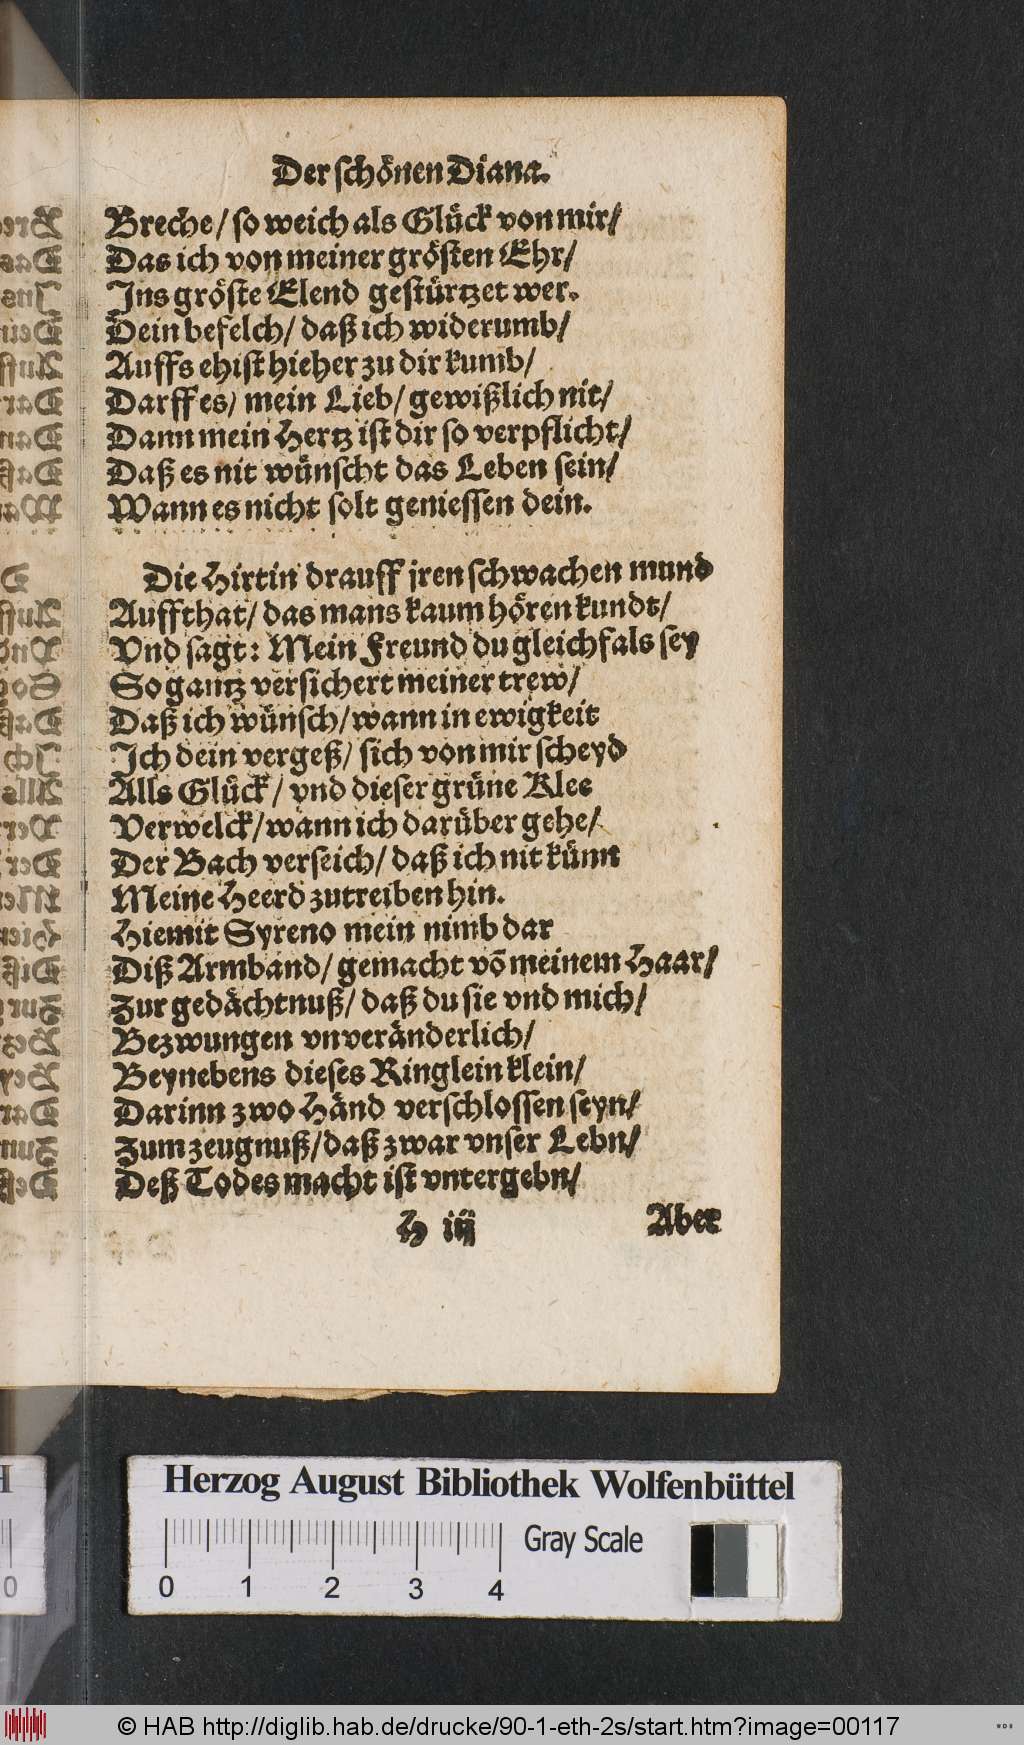 Der schönen Diana.
Breche / so weich als Glück von mir /
Das ich von meiner grösten Ehr /
Ins gröste Elend gestürtzet wer.
Dein befelch / daß ich widerumb /
Auffs ehist hieher zu dir kumb /
Darff es / mein Lieb / gewißlich nit /
Dann mein Hertz ist dir so verpflicht /
Daß es nit wünscht das Leben sein /
Wann es nicht solt geniessen dein.
Die Hirtin drauff jren schwachen mund
Auffthat / das mans kaum hören kundt /
Vnd sagt: Mein Freund du gleichfals sey
So gantz versichert meiner trew /
Daß ich wünsch / wann in ewigkeit
Ich dein vergeß / sich von mir scheyd
Alls Glück / vnd dieser grüne Klee
Verwelck / wann ich darüber gehe /
Der Bach verseich / daß ich nit künn
Meine Heerd zutreiben hin.
Hiemit Syreno mein nimb dar
Diß Armband / gemacht vō meinem Haar /
Zur gedächtnuß / daß du sie vnd mich /
Bezwungen vnveränderlich /
Beynebens dieses Ringlein klein /
Darinn zwo Händ verschlossen seyn /
Zum zeugnuß / daß zwar vnser Lebn /
Deß Todes macht ist vntergebn /
H iij Aber
Herzog August Bibliothek Wolfenbüttel
Gray Scale
0 1 2 3 4
© HAB http://diglib.hab.de/drucke/90-1-eth-2s/start.htm?image=00117